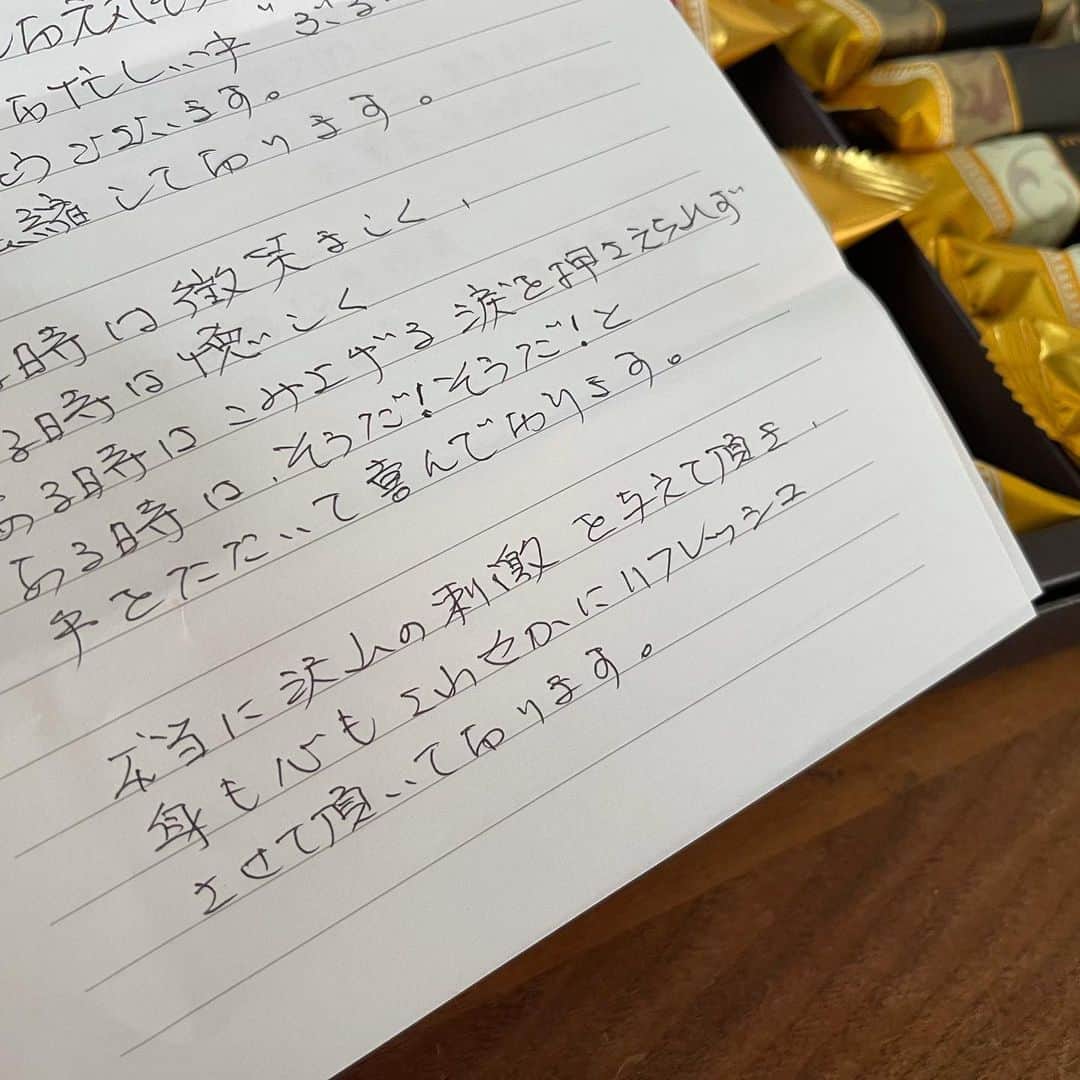 お忙しい中
うございます。
縮しております。
る時は微笑ましく、
る時は懐しく
ある時はこみ上げる涙を押さえられず
ある時は、そうだ！そうだ！と
手をたたいて喜んでおります。
本当に沢山の刺激を与えて頂き、
身も心もさわやかにリフレッシュ
させて頂いております。